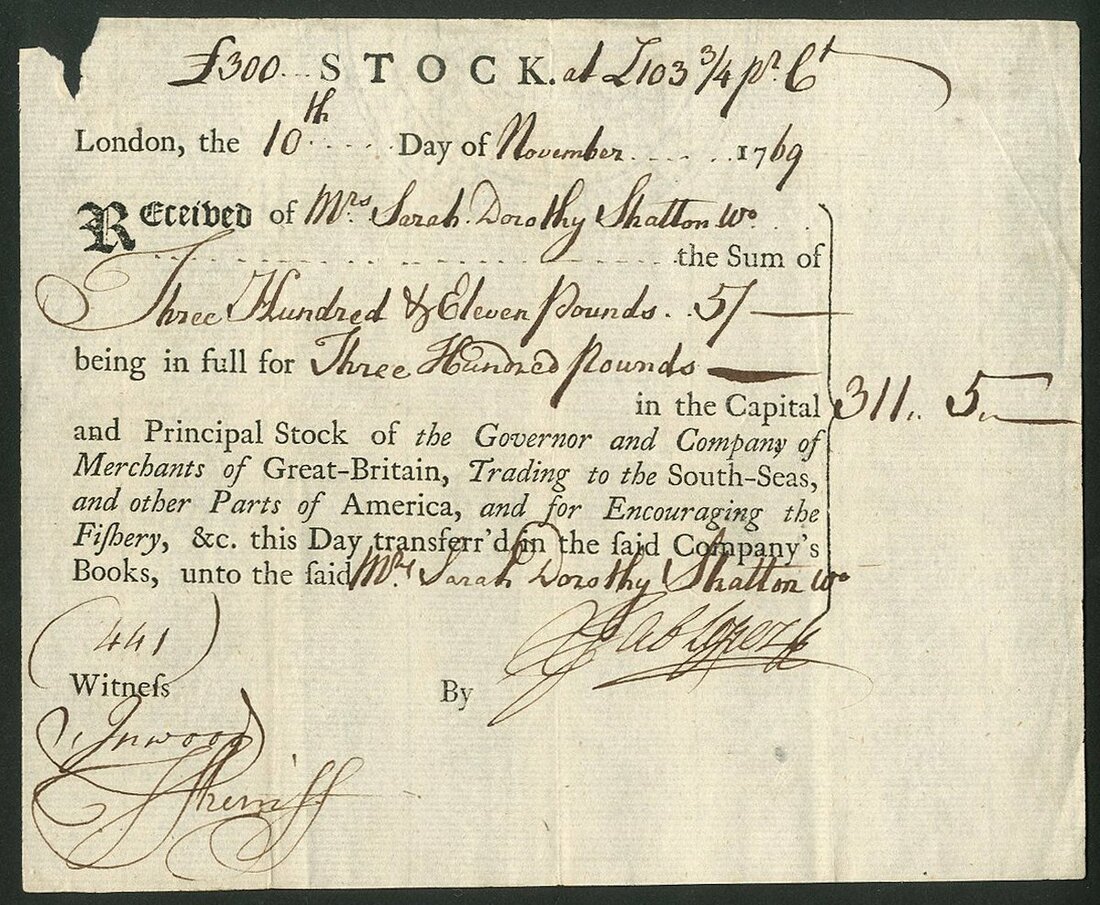 £300 . . . STOCK. at £103 3/4 pr. Ct
London, the 10th . . . . Day of November . . . . . . 1769
Received of Mrs. Sarah Dorothy Shatton Wo. . . .
the Sum of
Three Hundred & Eleven Pounds . . 5/ —
being in full for Three Hundred Pounds —
in the Capital
311 . . 5 . . —
and Principal Stock of the Governor and Company of
Merchants of Great-Britain, Trading to the South-Seas,
and other Parts of America, and for Encouraging the
Fiſhery, &c. this Day transferr'd in the ſaid Company's
Books, unto the ſaid Mrs. Sarah Dorothy Shatton Wo
441
Witneſs
By
Inwood
Sherriff